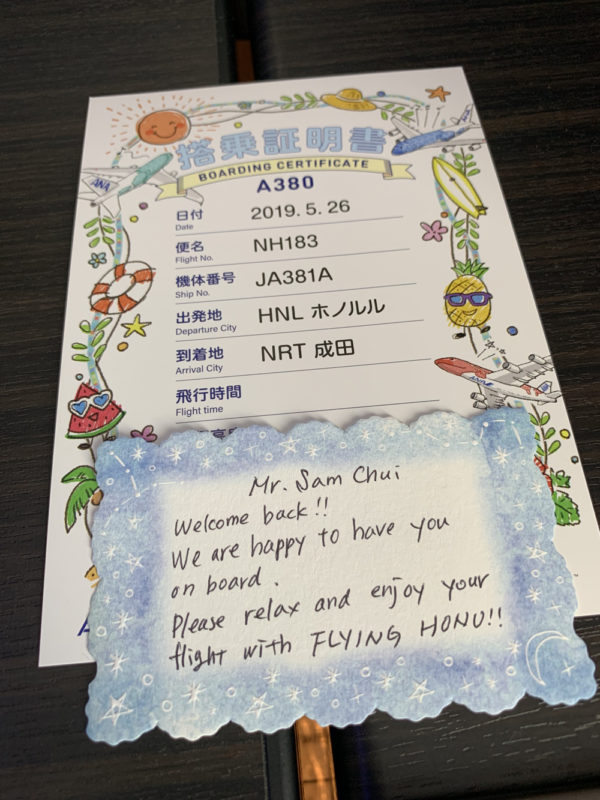 搭乗証明書
BOARDING CERTIFICATE
A380
ANA
日付 2019. 5. 26
Date
便名 NH183
Flight No.
機体番号 JA381A
Ship No.
出発地 HNL ホノルル
Departure City
到着地 NRT 成田
Arrival City
飛行時間
Flight time
Mr. Sam Chui
Welcome back!!
We are happy to have you
on board.
Please relax and enjoy your
flight with FLYING HONU!!